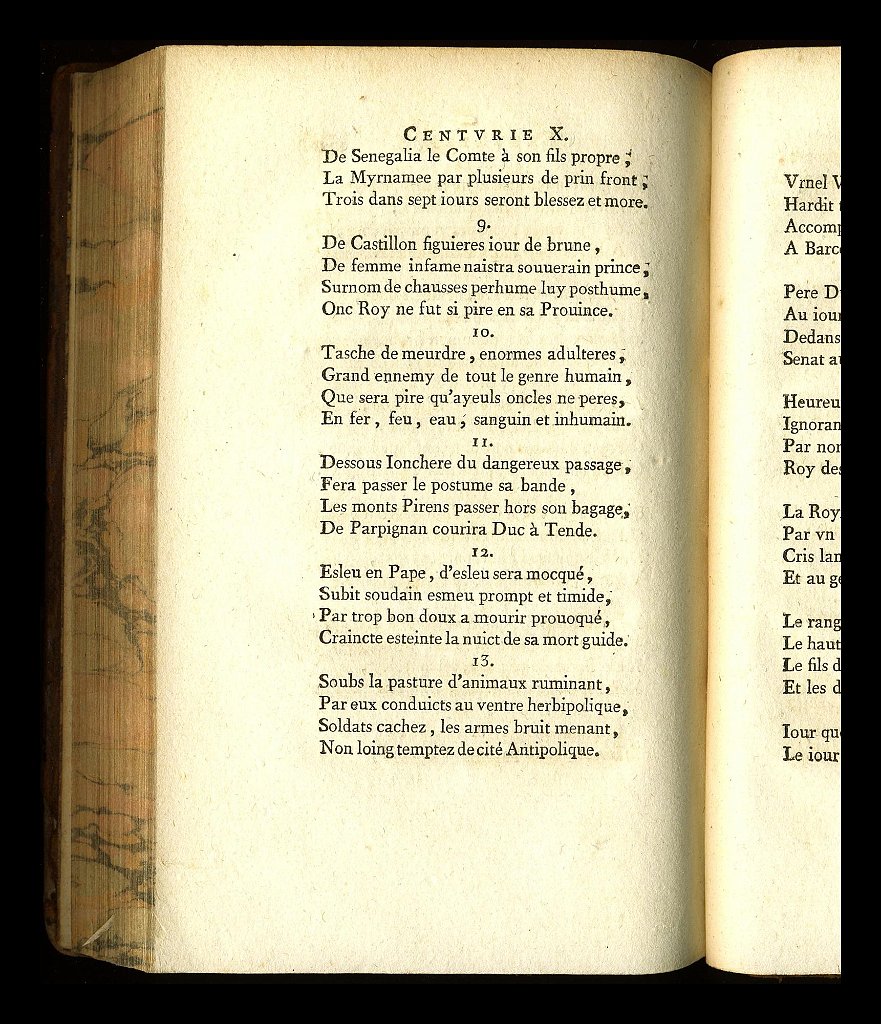 CENTVRIE X.
De Senegalia le Comte à son fils propre,
La Myrnamee par plusieurs de prin front,
Trois dans sept iours seront blessez et more.
9.
De Castillon figuieres iour de brune,
De femme infame naistra souuerain prince,
Surnom de chausses perhume luy posthume,
Onc Roy ne fut si pire en sa Prouince.
10.
Tasche de meurdre, enormes adulteres,
Grand ennemy de tout le genre humain,
Que sera pire qu'ayeuls oncles ne peres,
En fer, feu, eau, sanguin et inhumain.
11.
Dessous Ionchere du dangereux passage,
Fera passer le postume sa bande,
Les monts Pirens passer hors son bagage,
De Parpignan courira Duc à Tende.
12.
Esleu en Pape, d'esleu sera mocqué,
Subit soudain esmeu prompt et timide,
Par trop bon doux a mourir prouoqué,
Craincte esteinte la nuict de sa mort guide.
13.
Soubs la pasture d'animaux ruminant,
Par eux conduicts au ventre herbipolique,
Soldats cachez, les armes bruit menant,
Non loing temptez de cité Antipolique.
Vrnel
Hardit
Accom
A Barc
Pere D
Au iour
Dedans
Senat
Heureu
Ignoran
Par nom
Roy des
La Roy
Par vn
Cris lan
Et au ge
Le rang
Le haut
Le fils d
Et les d
Iour que
Le iour